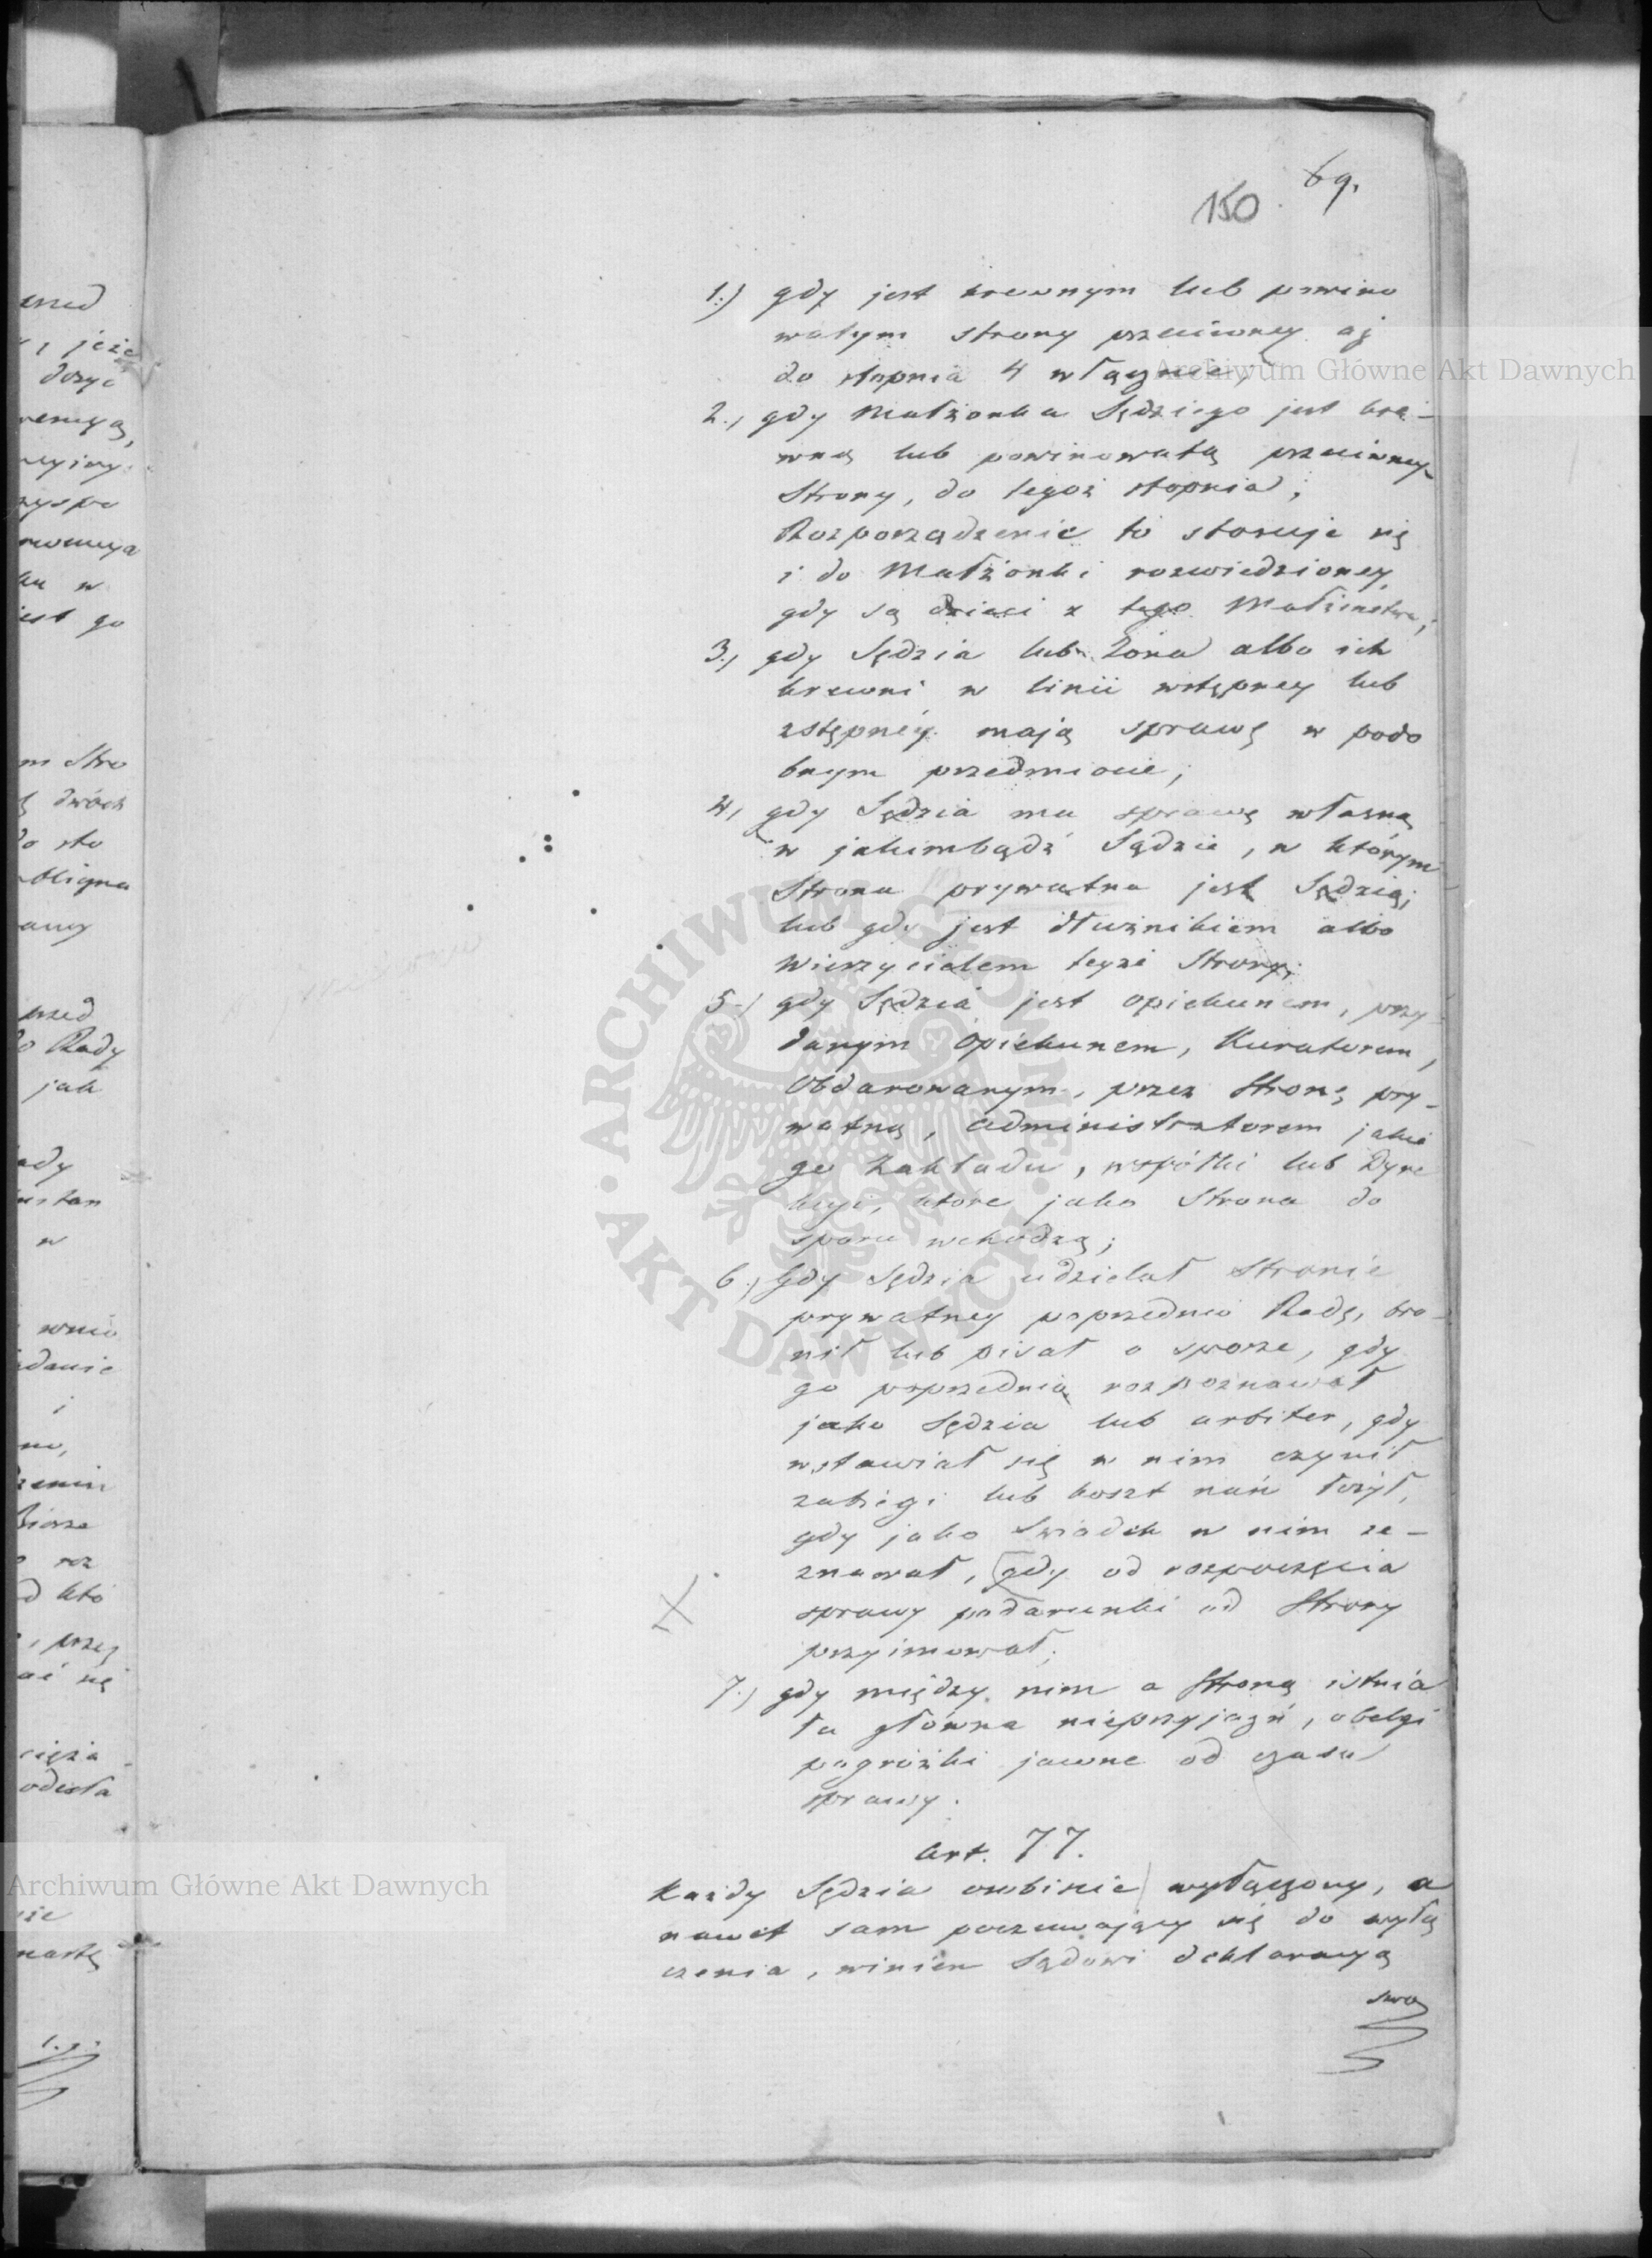 150. 69.
1.) gdy jest krewnym lub powino
watym strony przeciwney aż
do stopnia 4 włącznie,
2.) gdy Małżonka Sędziego jest kre-
wną lub powinowatą przeciwney
Strony, do tegoż stopnia;
Rozporządzenie to stosuje się
i do Małżonki rozwiedzioney,
gdy są dzieci z tego Małżeństwa;
3.) gdy Sędzia lub Żona albo ich
krewni w linii wstępney lub
zstępnéy mają sprawę w podo
bnym przedmiocie;
4.) gdy Sędzia ma sprawę własną
w jakimbądź Sądzie, w którym
Strona prywatna jest Sędzią;
lub gdy jest dłużnikiem albo
Wierzycielem teyże Strony;
5.) gdy Sędzia jest opiekunem, przy
danym Opiekunem, Kuratorem,
Obdarowanym, przez Stronę pry-
watną, administratorem jakie
go Zakładu, wspólki lub Dyre
kcyi, które jako Strona do
sporu wchodzą;
6.) Gdy Sędzia udzielał Stronie
prywatney poprzednio Radę, bro-
nił lub pisał o sporze, gdy
go poprzednią rozpoznawał
jako Sędzia lub arbiter, gdy
wstawiał się w nim czynił
zabiegi lub koszt nań łożył,
gdy jako Swiadek w nim ze-
znawał, (gdy od rozpoczęcia
sprawy podarunki od Strony
przyimował;
7.) gdy między nim a Stroną istnia
ła główna nieprzyjaźń, obelgi
pogróżki jawne od czasu
sprawy.
Art. 77.
Każdy Sędzia osobiście wyłączony, a
nawet sam poczuwający się do wyłą
czenia, winien Sądowi deklaracyą
swoą
Archiwum Główne Akt Dawnych
Archiwum Główne Akt Dawnych
ARCHIWUM GŁÓWNE · AKT DAWNYCH ·